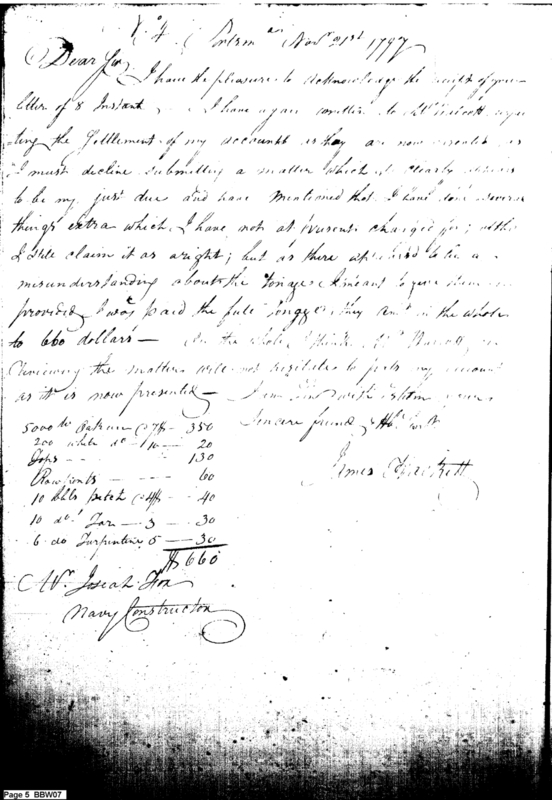 No 4 Nov 21st 1797
Dear Sir, I have the pleasure to acknowledge the receipt of your
letter of 8 Instant I have again written to Mr
ting the Settlement of my accounts as they are now
I must decline submitting a matter which is clearly
to be my just due and have mentioned that I have done several
things extra which I have not at present charged for; altho
I still claim it as a right; but as there appeared to be a
misunderstanding about the tonage I meant to give them in
provided I was paid the full tonage they amt in the whole
to 660 dollars — On the whole I think Mr on
reviewing the matter will not hesitate to pass my account
as it is now presented — I am Sir with esteem your
5000 lb Oakum @ 7$ — 350 Sincere friend & Hble Servt
200 white do — 10 — 20 James Hackett
Tops — — 130
— — 60
10 bbls pitch @ 4$ — 40
10 do Tar — 3 — 30
6 do Turpentine 5 — 30
$660
Mr Josiah Fox
Navy Constructor
Page 5 BBW07